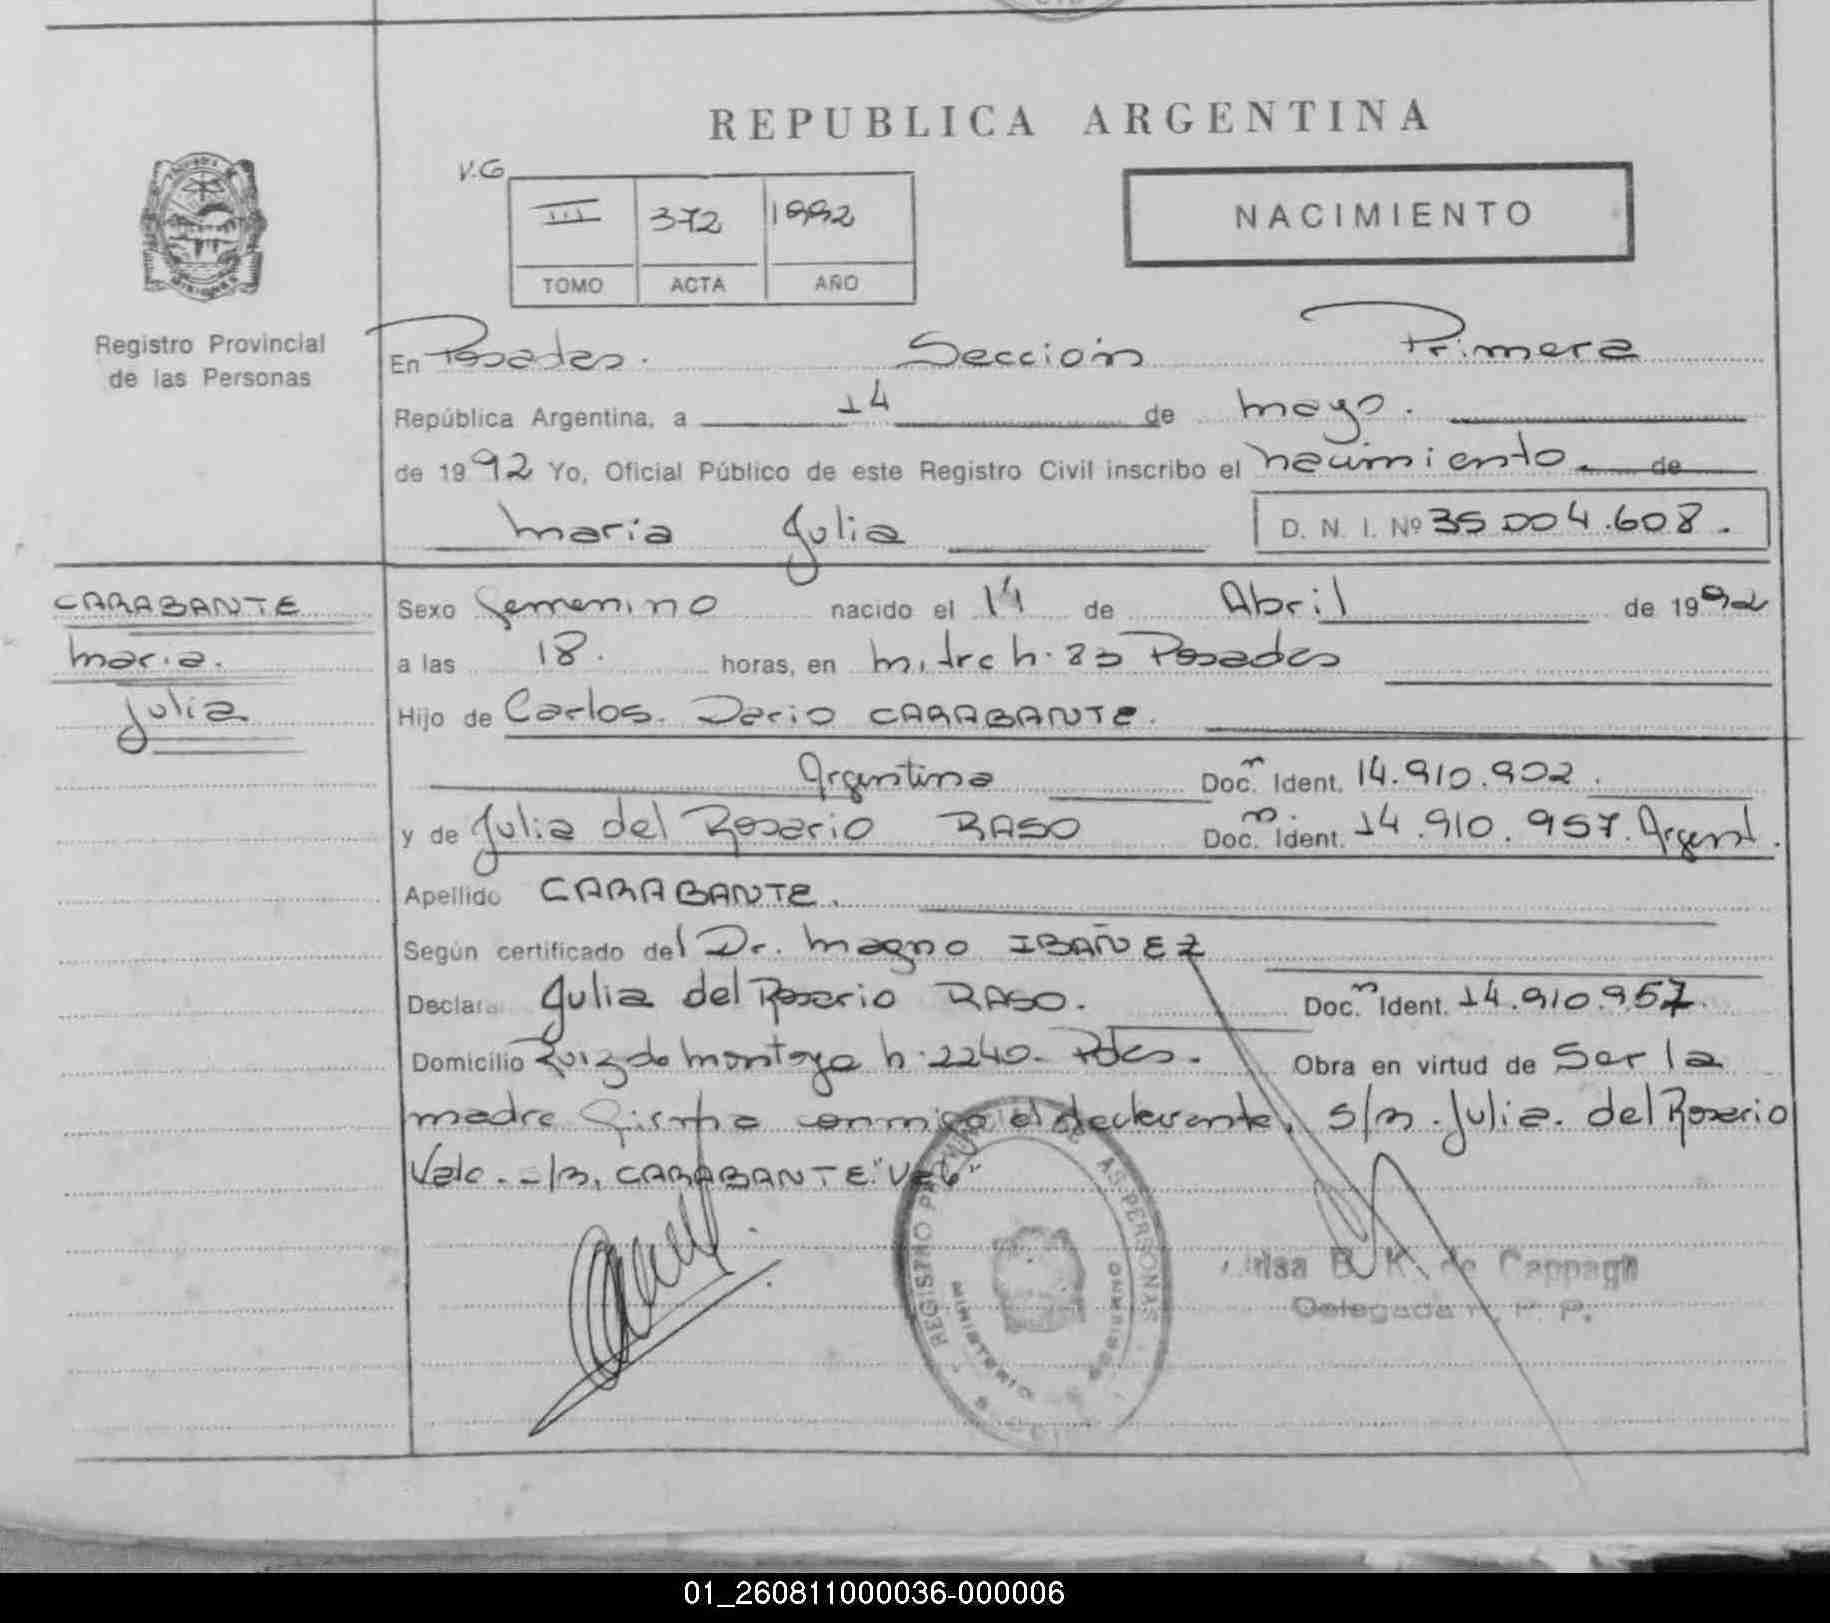 REPUBLICA ARGENTINA
V.G
III 372 1992
TOMO ACTA AÑO
NACIMIENTO
Registro Provincial
de las Personas
En Posadas. Sección Primera
República Argentina, a 14 de mayo.
de 1992 Yo, Oficial Público de este Registro Civil inscribo el nacimiento. de
maria Julia D. N. I. Nº 35.004.608.
CARABANTE
maria.
Julia
Sexo femenino nacido el 14 de Abril de 1992
a las 18. horas, en mitre n. 83 Posadas
Hijo de Carlos. Dario CARABANTE.
Argentina Doc. n Ident. 14.910.902.
y de Julia del Rosario RASO Doc. n. Ident. 14.910.957. Argent.
Apellido CARABANTE.
Según certificado del Dr. Magno IBAÑEZ
Declara Julia del Rosario RASO. Doc. n Ident. 14.910.957.
Domicilio Ruiz de montoya n. 2240. Pdas. Obra en virtud de Ser la
madre firma conmigo el declarante. S/R. Julia. del Rosario
Vale. - CARABANTE "V=G"
REGISTRO DE LAS PERSONAS
MINISTERIO DE GOBIERNO
B. K. de Cappagli
Delegada R. P. P.
01_260811000036-000006